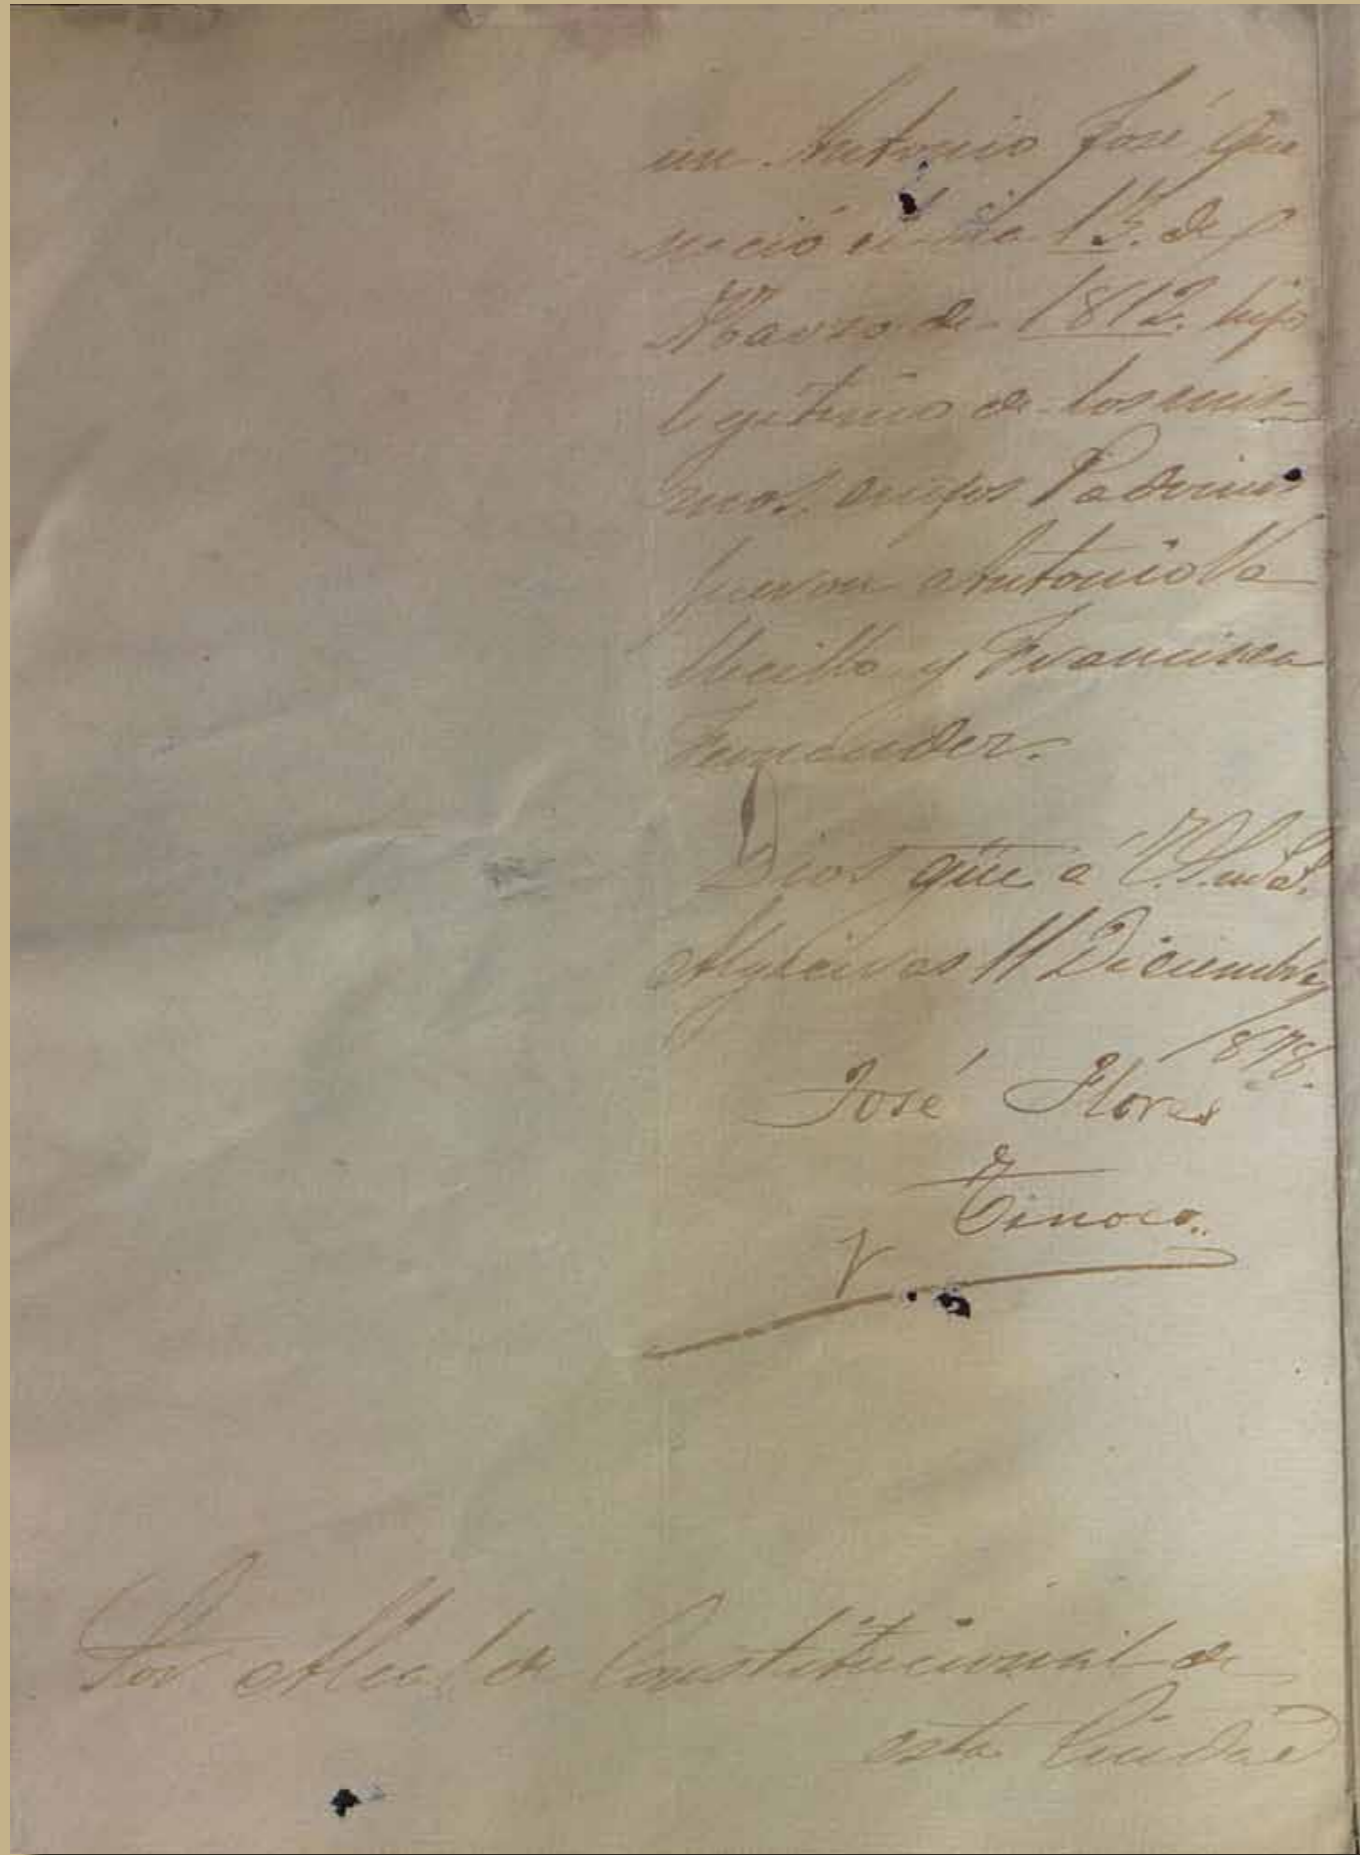 un Antonio José que
nació el dia 13. de
Marzo de 1812. hijo
legitimo de los mis-
mos, cuyos Padrinos
fueron Antonio Va
y Francisca
Fernandez.
Dios gue á V.S. m.s a.s
Algeciras 11 Diciembre
1878.
José Flores
Tinoco.
Sor Alcalde Constitucional de
esta Ciudad